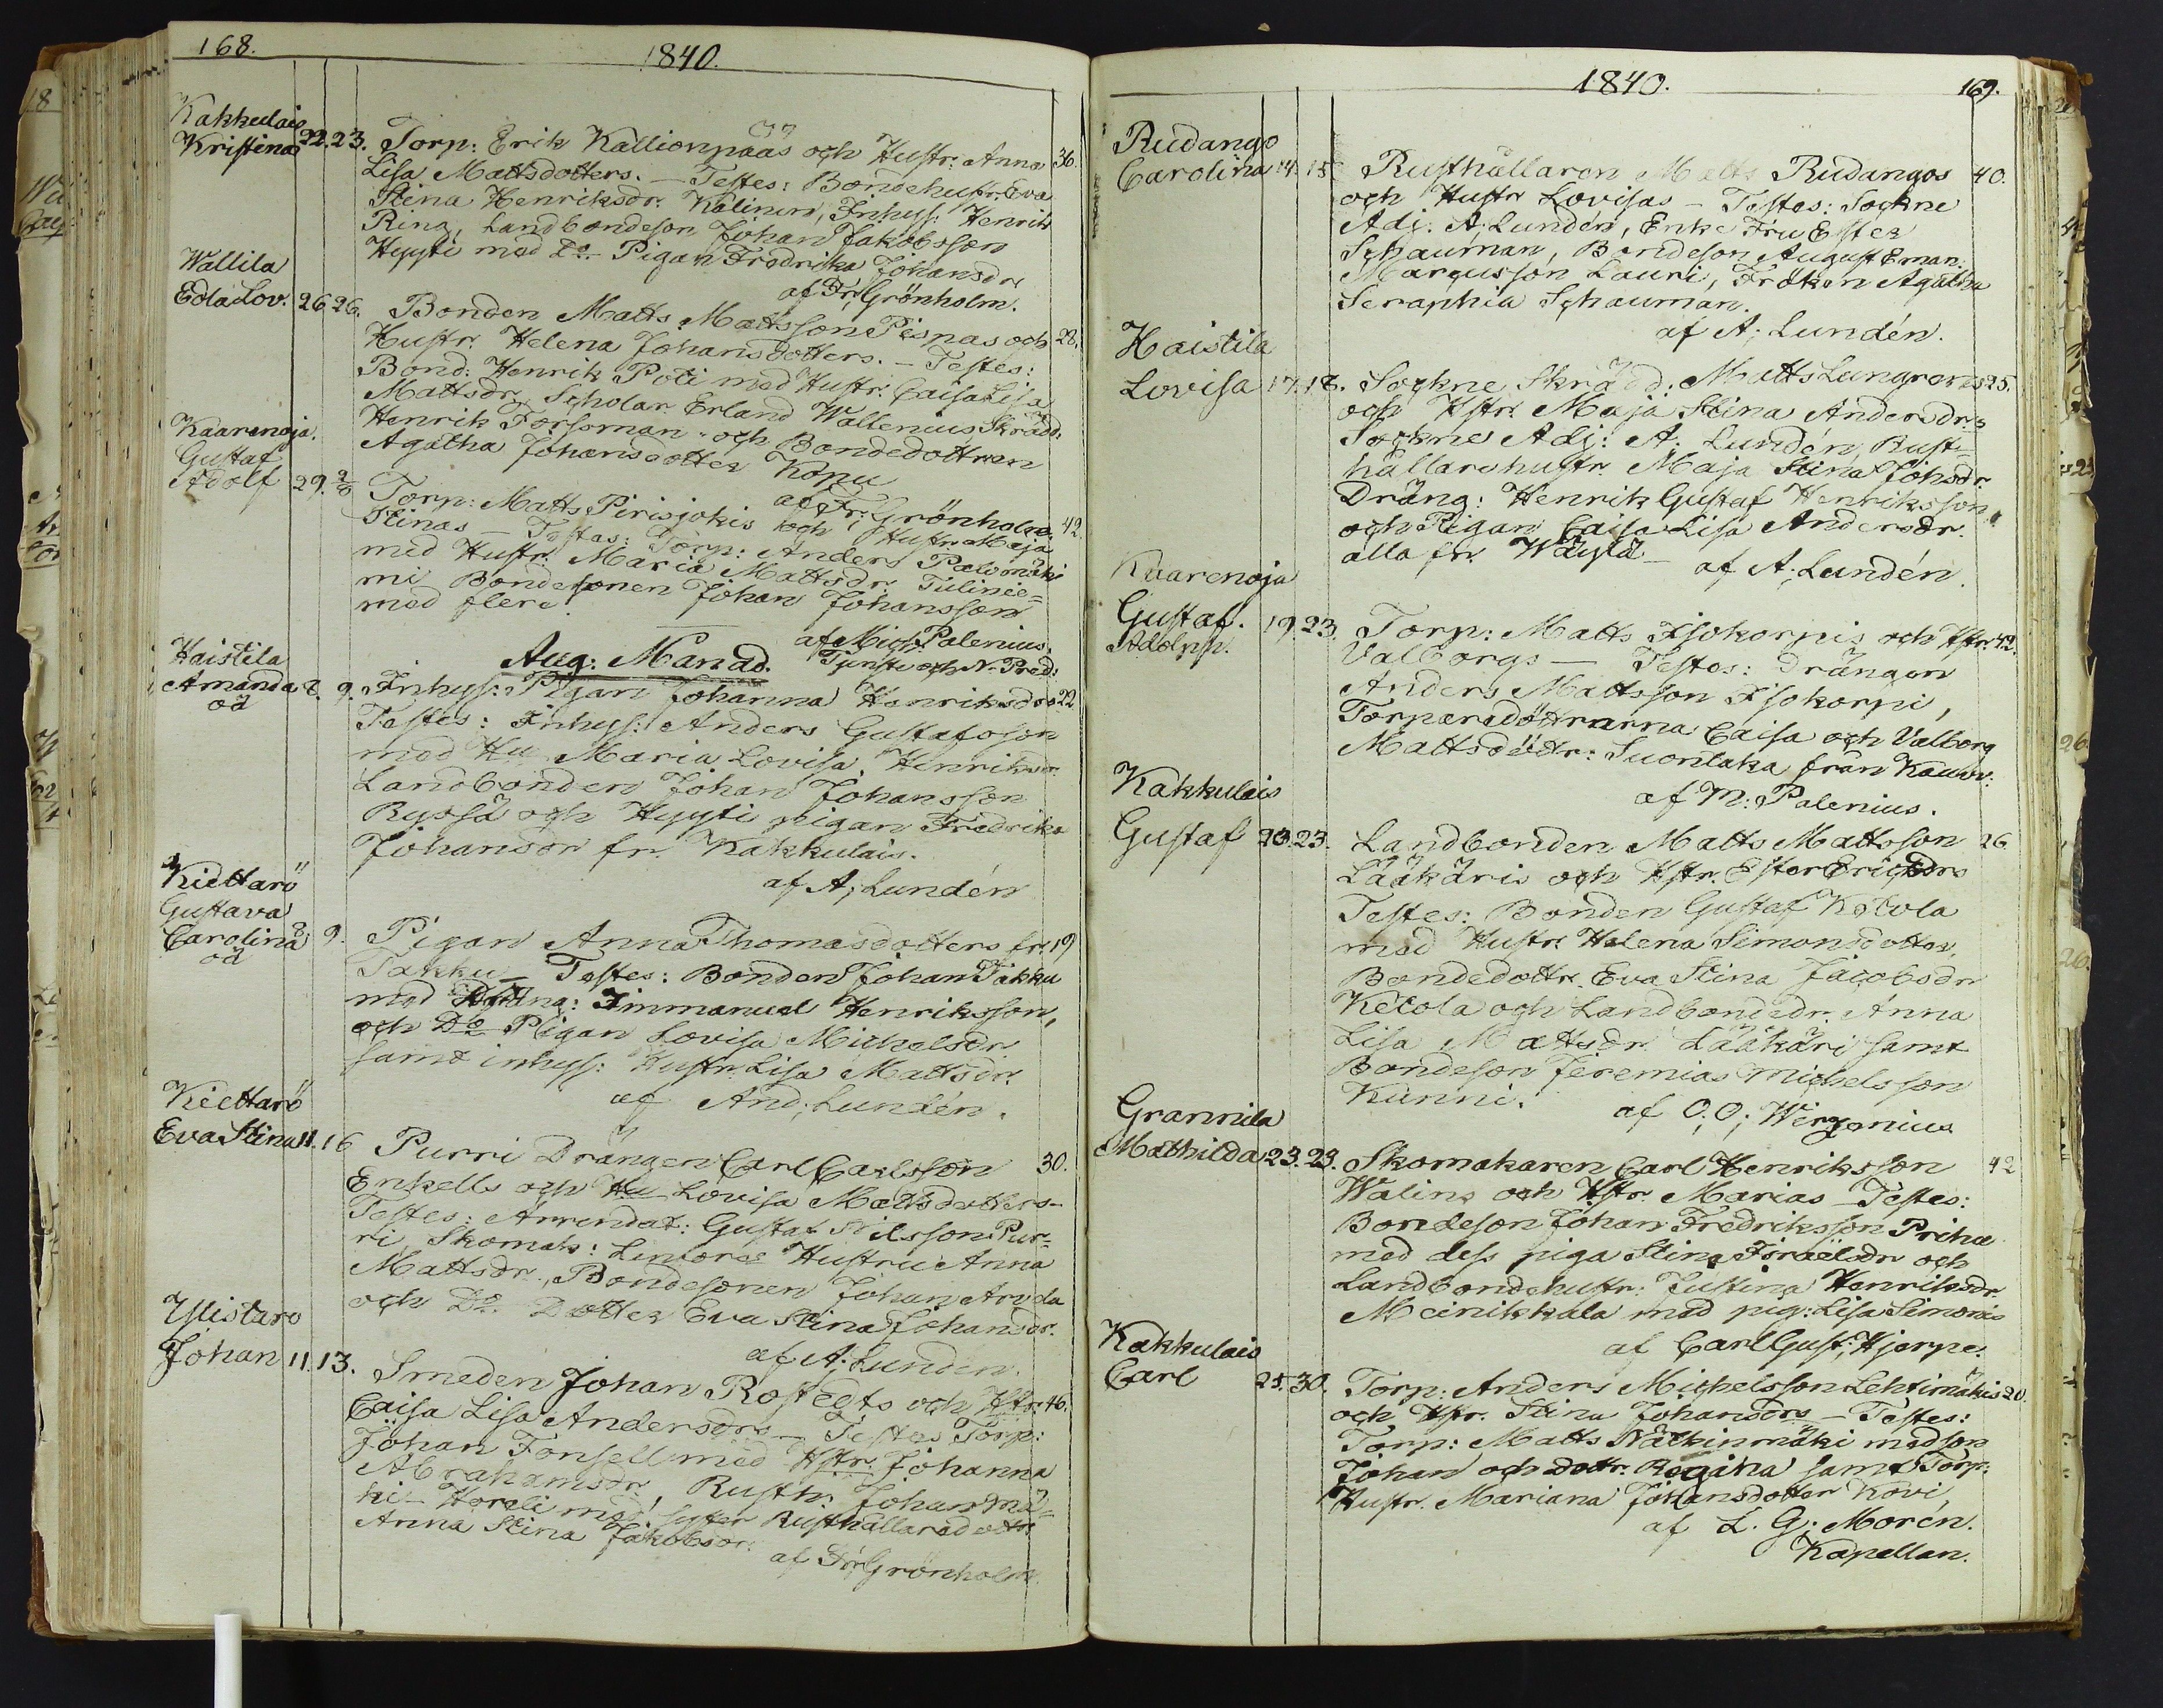 168.
1840.
Kakkulais
Kristina 22. 23. Torp: Erik Kallionpääs och Hustr: Anna 36.
Lisa Mattsdotters. – Testes: Bondehustr. Eva
Stina Henriksdr. Kalinen, Inhys: Henrik
Ring, Landbondeson Johan Jakobsson
Hyyti med Do Pigan Fredrika Johansdr
af Fr. Grönholm.
Wallila
Eda Lov. 26 26. Bonden Matts Mattsson Pispas och 28.
Hustr. Helena Johansdotters. – Testes:
Bond: Henrik Poti med Hustr: Caisa Lisa
Mattsdr, Scholar Erland Wallenius Skrädd:
Henrik Forsman och Bondedottren
Agatha Johansdotter Kopu
af Fr: Grönholm.
Kaarenoja.
Gustaf
Adolf 29. 2/8 Torp: Matts Pirisjokis och Hustr. Maja 42.
Stinas – Testes: Torp: Anders Palomäki
med Hustr. Maria Mattsdr. Tulinie=
mi Bondesonen Johan Johansson
med flere.
af Mich: Palenius.
Tjenste och N. Pred:
Aug: Månad.
Haistila
Amanda 8. 9. Inhys: Pigan Johanna Henriksdrs 22
oä
Testes: Inhys: Anders Gustafsson
med Hu Maria Lovisa Henriksdr.
Landbonden Johan Johansson
Ryssä och Hyyti pigan Fredrika
Johansdr fr. Kakkulais.
af A; Lundén
Kiettarö
Gustava
Carolina 8. 9. Pigan Anna Thomasdotters fr. 19
oä
Takku – Testes: Bonden Johan Takku
med Dräng: Immanuel Henriksson,
och Do Pigan Lovisa Mickelsdr
samt inhys: Hustr. Lisa Mattsdr.
af And; Lundén.
Kiettarö
Eva Stina 11. 16 Purri Drängen Carl Carlsson 30.
Enkells och Hu Lovisa Mattsdotters –
Testes: Arrendat: Gustaf Nilsson Pur=
ri, Skomak: Hustru Anna
Mattsdr., Bondesonen Johan Arvela
och Do Dotter Eva Stina Johansdr.
af A; Lundén.
Ylistaro
Johan 11. 13. Smeden Johan Rostedts och Hstr. 46.
Caisa Lisa Andersdrs – Testes Torp:
Johan Fonsell med Hstr. Johanna
Abrahamsdr., Rusth: Johan Mä=
ki – Horeli med syster Rusthållaredottr.
Anna Stina Jakobsdr.
af Fr. Grönholm.
1840.
169.
Rudango
Carolina 14. 15 Rusthållaren Matts Rudangos 40.
och Hustr Lovisas – Testes: Sockne
Adj. A; Lundén, Enke Fru Ester
Schauman, Bondeson August Eman.
Marcusson Lauri, Fröken Agatha
Seraphia Schauman.
af A; Lundén.
Haistila
Lovisa 17. 18. Sockne Skrädd: Matts Lungrens 25.
och Hstr. Maja Stina Andersdrs
Sockne Adj: A; Lundén, Rust=
hållarehustr. Maja Stina Johsdr.
Dräng: Henrik Gustaf Henriksson
och Pigan Caisa Lisa Andersdr.
alla fr. Wäylä – af A; Lundén.
Kaarenoja
Gustaf. 19. 23. Torp: Matts Isokorpis och Hstr. 42.
Adolph.
Valborgs – Testes: Drängen
Anders Mattsson Isokorpi,
Torparedöttrarna Caisa och Valborg
Mattsdöttr: Suontaka från Kauv:
af M: Palenius.
Kakkulais
Gustaf 23. 23. Landbonden Matts Mattsson 26
Lääkäris och Hstr. Ester Ericsdrs
Testes: Bonden Gustaf Ketola
med Hustr. Helena Simonsdotter,
Bondedottr. Eva Stina Jacobsdr
Ketola och Landbondedr. Anna
Lisa Mattsdr. Lääkäri samt
Bondeson Jeremias Michelsson
Kunni. af O; O; Wirzenius
Grannila
Mathilda 23. 23. Skomakaren Carl Henriksson 42
Walins och Hstr. Marias – Testes:
Bondeson Johan Fredriksson Priha
med dess piga Stina Israelsdr och
Landbondehustr: Justina Henriksdr
Meinikkala med pig: Lisa Simons
af Carl Gust; Hjerpe.
Kakkulais
Carl 25. 30. Torp: Anders Michelsson Lehtimäkis 20.
och Hstr. Stina Johansdrs – Testes:
Torp: Matts Nätkinmäki med son
Johan och dottr. Regina samt Torp:
Hustr. Mariana Johansdotter Kovi,
af L. G; Morén.
Kapellan.